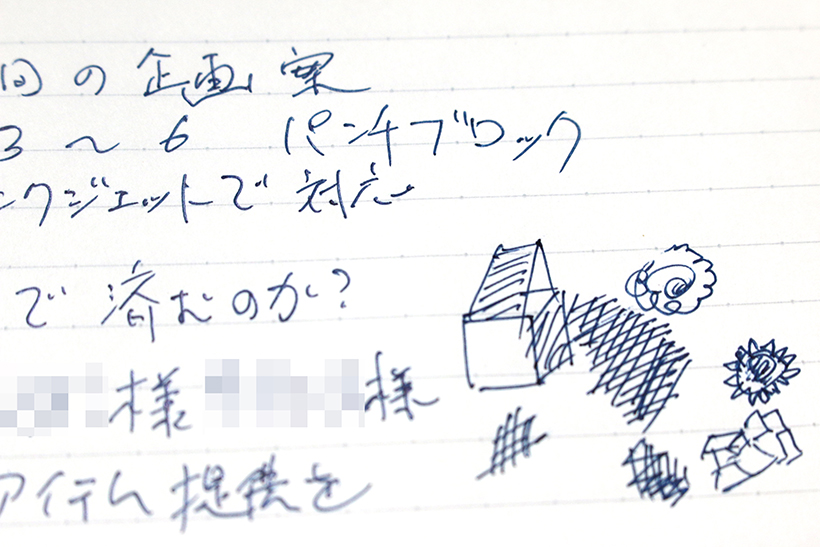 回の企画案
3〜6 パンチブロック
ンクジェットで対応
で済むのか?
様 様
アイテム提供を